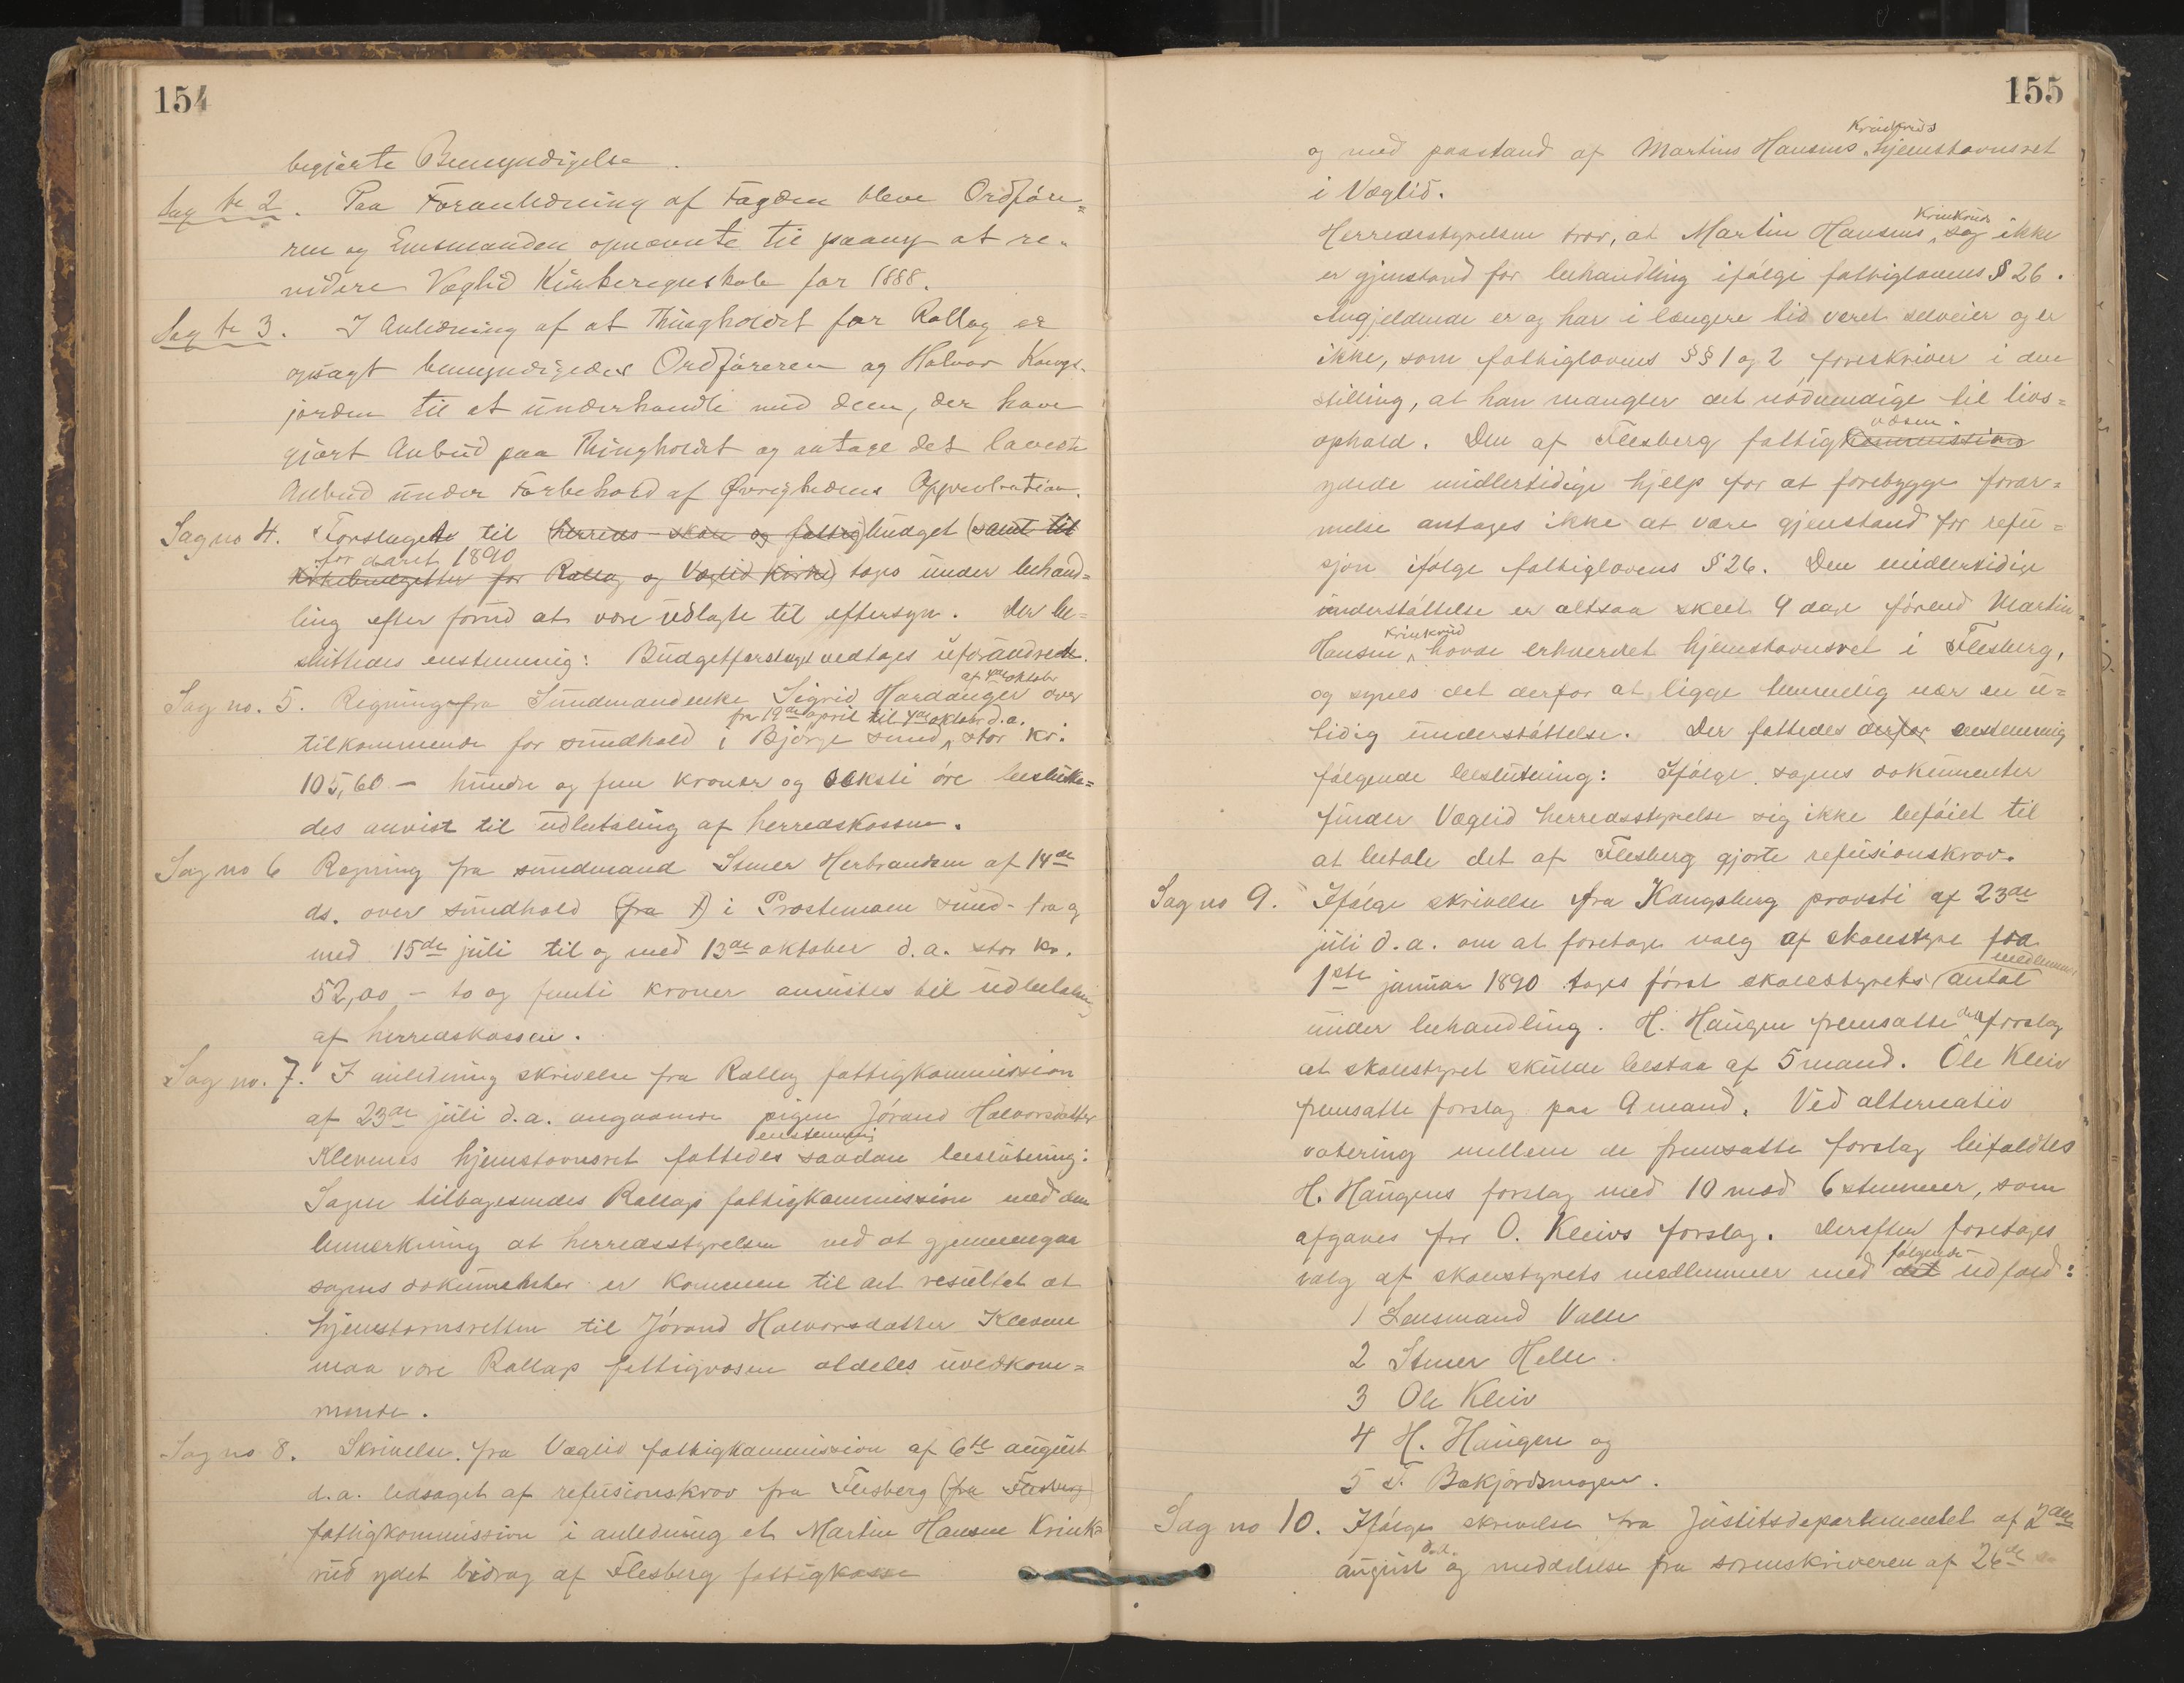 154
begjærte Bemyndigelse.
Sag № 2. Paa Foranledning af Fogden bleve Ordføre=
ren og Lensmanden opnævnte til paany at re-
videre Veglid Kirkeregnskab for 1888.
Sag № 3. I Anledning af at Thingholdet for Rollag er
opsagt bemyndigedes Ordføreren og Halvor Kongs-
jorden til at underhandle med dem, der have
gjort Anbud paa Thingholdet og antage det laveste
Anbud under Forbehold af Øvrighedens Approbation.
Sag no 4. Forslaget til (herreds- skole og fattig) budget (samt til
for aaret 1890
kirkebudgetter for Rollag og Veglid kirke) toges under behand=
ling efter forud at være udlagte til eftersyn. Der be=
sluttedes enstemmig: Budgetforslaget vedtages uforandret.
af 4de oktober
Sag no. 5. Regning fra Sundmandenke Sigrid Hardanger over
fra 19de april til 4de oktober d.a.
tilkommende for sundhold i Bjørge sund, stor kr.
105,60 – hundre og fem kroner og seksti øre beslutte=
des anvist til udbetaling af herredskassen.
Sag no 6 Regning fra sundmand Stener Herbrandsen af 14de
ds. over sundhold (fra 1) i Prestemoen sund - fra og
med 15de juli til og med 13de oktober d.a. stor kr.
52,00 – to og femti kroner anvistes til udbetaling
af herredskassen.
Sag no. 7. I anledning skrivelse fra Rollag fattigkommission
af 23de juli d.a. angaaende pigen Jørand Halvorsdatter
enstemmig
Klevenes hjemstavnsret fattedes saadan beslutning:
Sagen tilbagesendes Rollags fattigkommission med den
bemerkning at herredsstyrelsen ved at gjennemgaa
sagens dokumenter er kommen til det resultat at
hjemstavnsretten til Jørand Halvorsdatter Klevene
maa være Rollags fattigvæsen aldeles uvedkom=
mende.
Sag no 8. Skrivelse fra Veglid fattigkommission af 6te august
d.a. ledsaget af refusionskrav fra Flesberg (fra Flesberg)
fattigkommission i anledning et Martin Hansen Krink=
rud ydet bidrag af Flesberg fattigkasse
155
Krinkruds
og med paastand af Martins Hansens hjemstavnsret
i Veglid.
Krinkruds
Herredsstyrelsen tror, at Martin Hansens sag ikke
er gjenstand for behandling ifølge fattiglovens § 26.
Angjeldende er og har i længere tid været selveier og er
ikke, som fattiglovens §§ 1 og 2 foreskriver i den
stilling, at han mangler det nødvendige til livs=
væsen.
ophold. Den af Flesberg fattigkommission
ydede midlertidige hjelp for at forebygge forar=
melse antages ikke at være gjenstand for refu=
sjon ifølge fattiglovens § 26. Den midlertidige
understøttelse er altsaa skeet 9 dage førend Martin
Krinkrud
Hansen havde erhvervet hjemstavnsret i Flesberg,
og synes det derfor at ligge temmelig nær en u=
tidig understøttelse. Der fattedes derfor enstemmig
følgende beslutning: Ifølge sagens dokumenter
finder Veglid herredsstyrelse sig ikke beføiet til
at betale det af Flesberg gjorte refusionskrav.
Sag no 9. Ifølge skrivelse fra Kongsberg provsti af 23de
juli d.a. om at foretage valg af skolestyre fra
medlemmer
1ste januar 1890 toges først skolestyrets antal
under behandling. H. Haugen fremsatte det forslag
at skolestyret skulde bestaa af 5 mand. Ole Kleiv
fremsatte forslag paa 9 mand. Ved alternativ
votering mellem de fremsatte forslag bifaldtes
H. Haugens forslag med 10 mod 6 stemmer, som
afgaves for O. Kleivs forslag. Derefter foretoges
følgende
valg af skolestyrets medlemmer med det udfald:
1 Lensmand Valle
2 Stener Helle.
3 Ole Kleiv
4 H. Haugen og
5 T. Bakjordsmogen.
Sag no 10. Ifølge skrivelse fra Justitsdepartementet af 2den
d.a.
august og meddelelse fra sorenskriveren af 26de